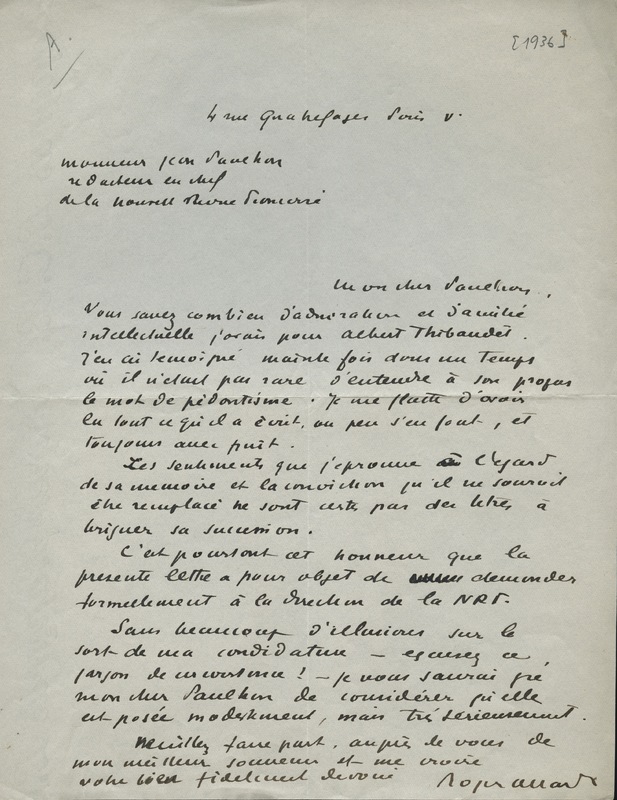 A.
[1936]
4 rue Quatrefages Paris V.
monsieur Jean Paulhan
rédacteur en chef
de la nouvelle Revue Française
Mon cher Paulhan,
Vous savez combien d'admiration et d'amitié
intellectuelle j'avais pour Albert Thibaudet.
J'en ai témoigné mainte fois dans un temps
où il n'était pas rare d'entendre à son propos
le mot de pédantisme. Je me flatte d'avoir
lu tout ce qu'il a écrit, ou peu s'en faut, et
toujours avec fruit.
Les sentiments que j'éprouve à l'égard
de sa mémoire et la conviction qu'il ne saurait
être remplacé ne sont certes pas des titres à
briguer sa succession.
C'est pourtant cet honneur que la
présente lettre a pour objet de demander
formellement à la direction de la NRF.
Sans beaucoup d'illusions sur le
sort de ma candidature – excusez ce
jargon de circonstance! – je vous saurai gré
mon cher Paulhan de considérer qu'elle
est posée modestement, mais très sérieusement.
Veuillez faire part, auprès de vous de
mon meilleur souvenir et me croire
votre bien fidèlement dévoué
Roger Allard